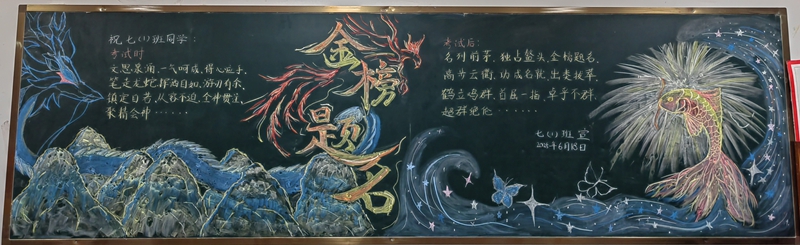 祝七(1)班同学:
考试时
文思泉涌,一气呵成,得心应手,
笔走龙蛇,挥洒自如,游刃有余,
镇定自若,从容不迫,全神贯注,
聚精会神······
金榜题名
考试后:
名列前茅,独占鳌头,金榜题名,
高步云衢,功成名就,出类拔萃,
鹤立鸡群,首屈一指,卓乎不群,
超群绝伦······
七(1)班宣